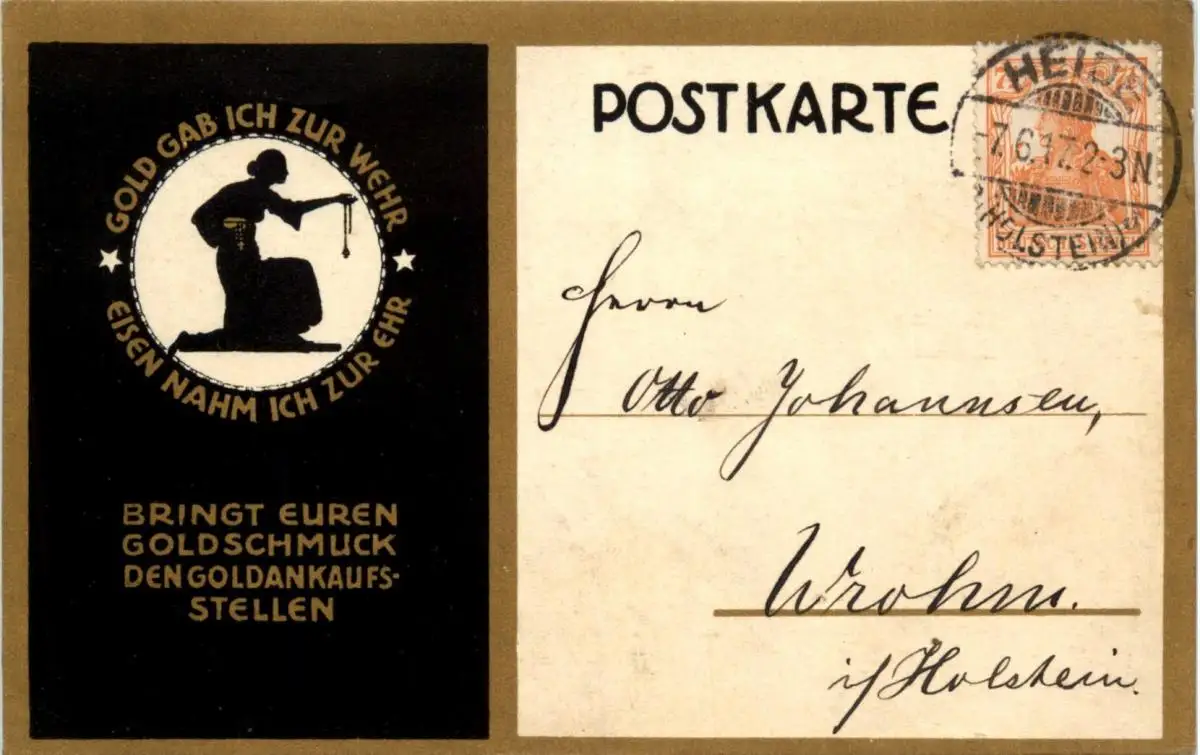 GOLD GAB ICH ZUR WEHR
EISEN NAHM ICH ZUR EHR
BRINGT EUREN
GOLDSCHMUCK
DEN GOLDANKAUFS-
STELLEN
POSTKARTE
HEIDE
7.6.17.2-3N
(HOLSTEIN)
Herrn
Otto Johannsen,
Wrohm.
i/Holstein.